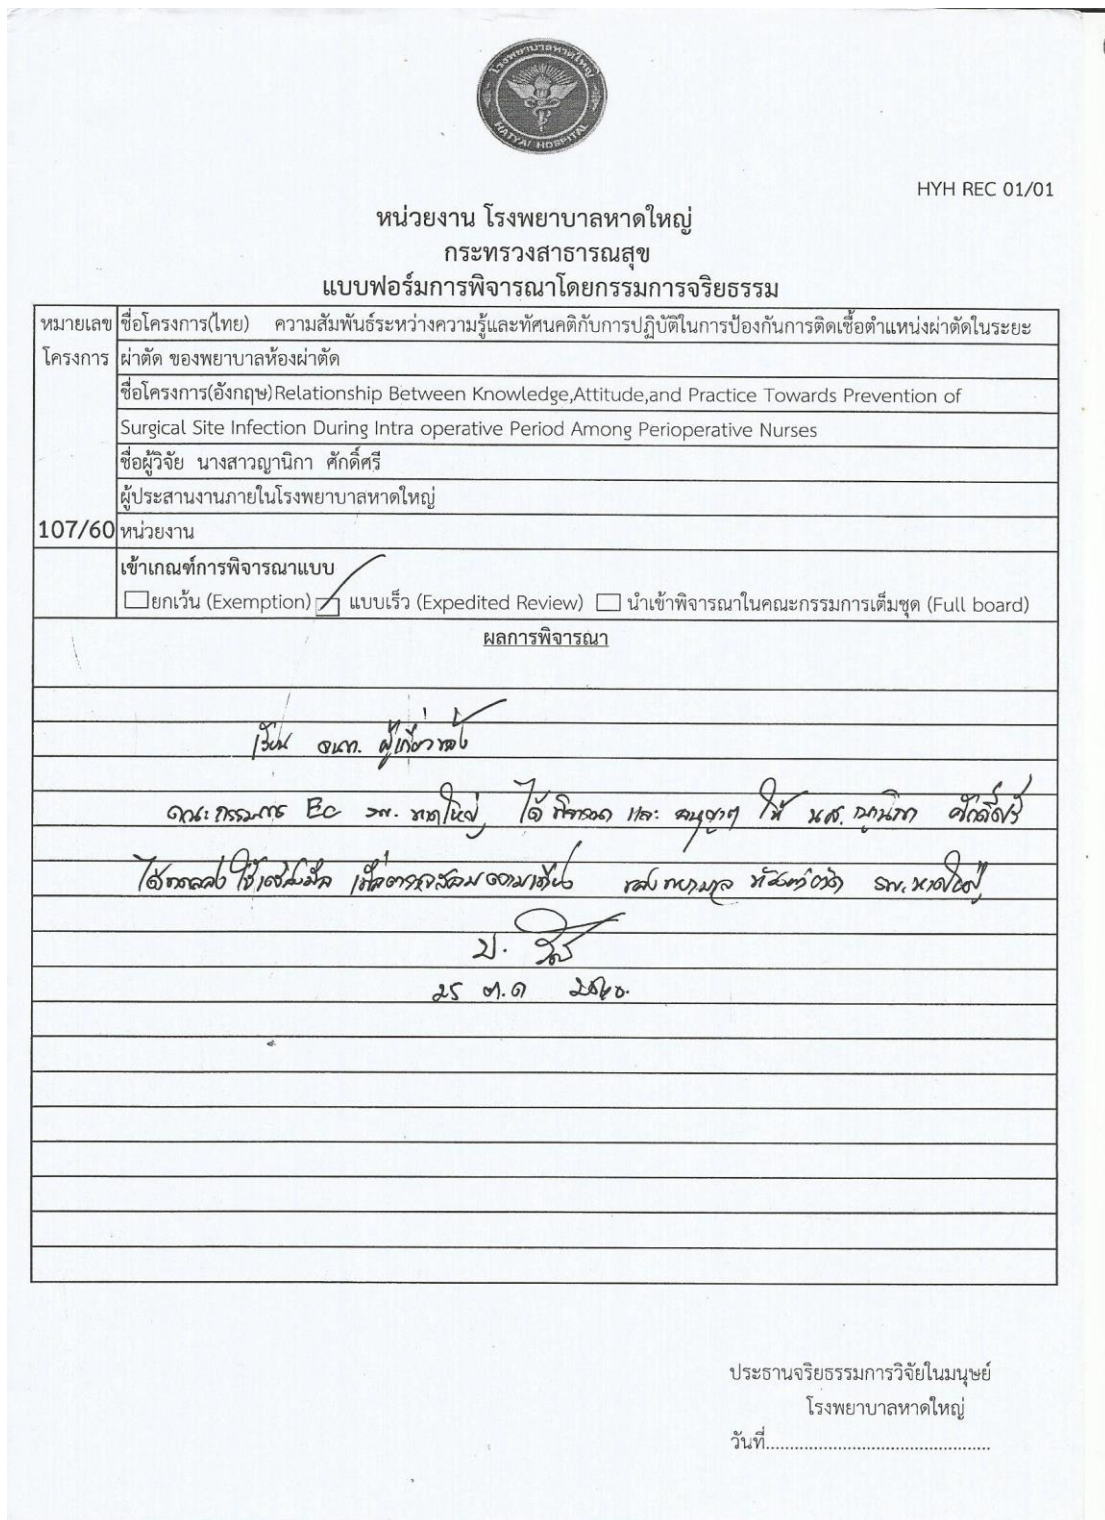 โรงพยาบาลหาดใหญ่
HATYAI HOSPITAL
HYH REC 01/01
หน่วยงาน โรงพยาบาลหาดใหญ่
กระทรวงสาธารณสุข
แบบฟอร์มการพิจารณาโดยกรรมการจริยธรรม
หมายเลข ชื่อโครงการ(ไทย) ความสัมพันธ์ระหว่างความรู้และทัศนคติกับการปฏิบัติในการป้องกันการติดเชื้อตำแหน่งผ่าตัดในระยะ
โครงการ ผ่าตัด ของพยาบาลห้องผ่าตัด
ชื่อโครงการ(อังกฤษ)Relationship Between Knowledge,Attitude,and Practice Towards Prevention of
Surgical Site Infection During Intra operative Period Among Perioperative Nurses
ชื่อผู้วิจัย นางสาวญานิกา ศักดิ์ศรี
ผู้ประสานงานภายในโรงพยาบาลหาดใหญ่
107/60 หน่วยงาน
เข้าเกณฑ์การพิจารณาแบบ
ยกเว้น (Exemption) แบบเร็ว (Expedited Review) นำเข้าพิจารณาในคณะกรรมการเต็มชุด (Full board)
ผลการพิจารณา
เรียน จนท. ผู้เกี่ยวข้อง
คณะกรรมการ EC รพ. หาดใหญ่ ได้พิจารณา และ อนุญาต ให้ นส. ญานิกา ศักดิ์ศรี
ได้ทดลอง ใช้เครื่องมือ เพื่อตรวจสอบความเที่ยง ของ พยาบาล ห้องผ่าตัด รพ. หาดใหญ่
25 ต.ค 2560.
ประธานจริยธรรมการวิจัยในมนุษย์
โรงพยาบาลหาดใหญ่
วันที่................................................